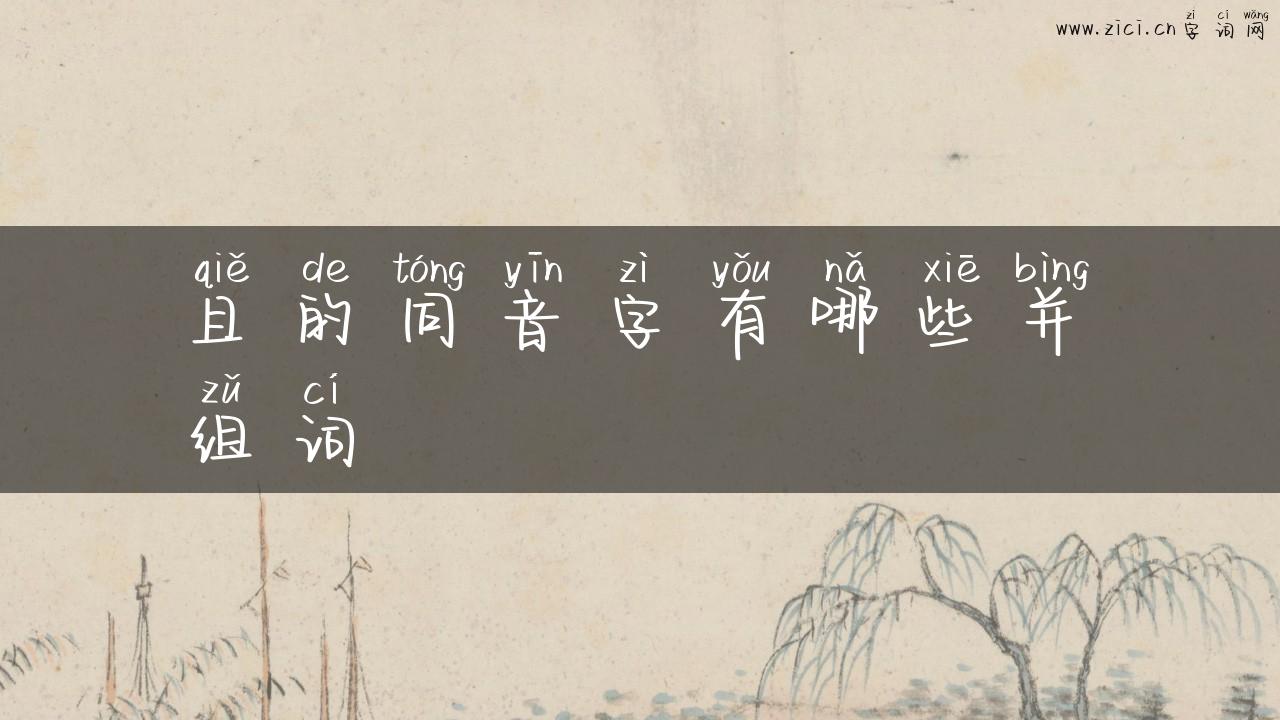 zì cí wǎng
www.zici.cn 字词网
qiě de tóng yīn zì yǒu nǎ xiē bìng
且的同音字有哪些并
zǔ cí
组词